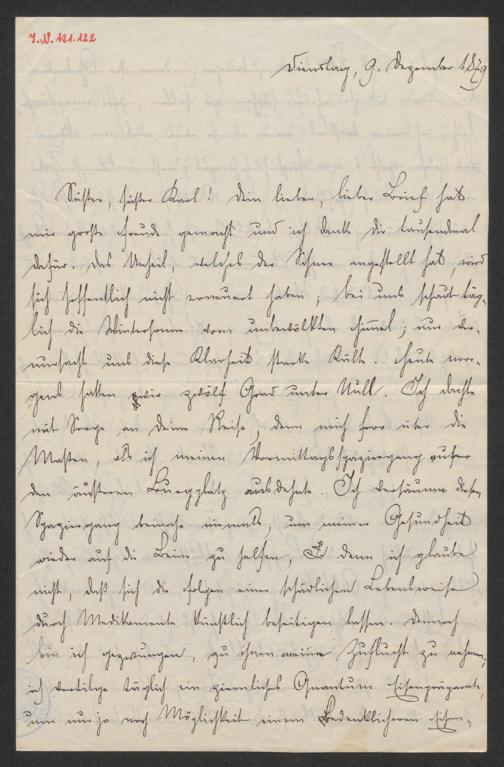 I.N. 121.122
Dienstag, 9. Dezember 1879
Süßer, süßer Karl! Dein lieber, lieber Brief hat
mir große Freude gemacht und ich danke dir tausendmal
dafür. Das Unheil, welches der Schnee angestellt hat, wird
sich hoffentlich nicht erneuert haben; bei uns schaut täg-
lich die Wintersonne vom unbewölkten Himmel; nur ver-
ursacht uns diese Klarheit starke Kälte. Heute mor-
gens hatten wir zwölf Grad unter Null. Ich dachte
mit Sorge an Deine Reise, denn mich fror über die
Maßen, als ich meinen Vormittagsspaziergang auf
den äußeren Burgplatz ausdehnte. Ich versäume diesen
Spaziergang beinahe niemals, um meiner Gesundheit
wieder auf die Beine zu helfen, denn ich glaube
nicht, daß sich die Folgen einer schädlichen Lebensweise
durch Medikamente künstlich beseitigen lassen. Dennoch
bin ich gezwungen, zu ihnen meine Zuflucht zu nehmen;
ich vertilge täglich ein ziemliches Quantum Eisenpräparate,
um nur ja nach Möglichkeit einem Bedenklicheren